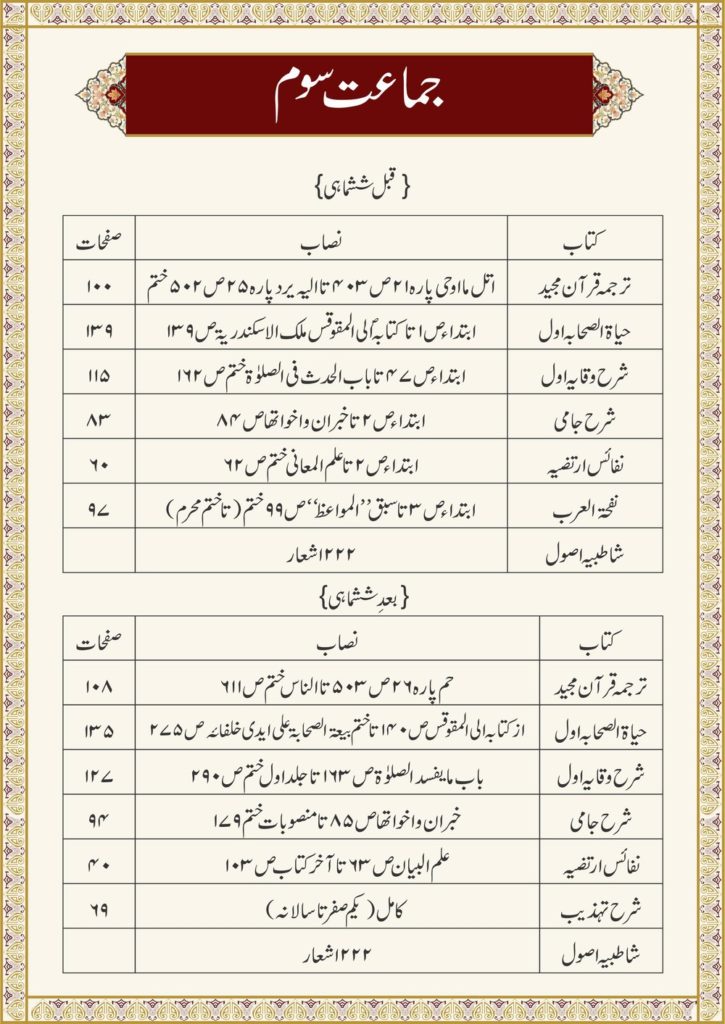 جماعت سوم
{قبل ششماہی}
کتاب نصاب صفحات
ترجمہ قرآن مجید اتل ما اوحی پارہ ۲۱ ص ۴۰۳ تا الیہ یرد پارہ ۲۵ ص ۵۰۲ ختم ۱۰۰
حیاۃ الصحابہ اول ابتداء ص ۱ تا کتابہٗ الی المقوقس ملک الاسکندریۃ ص ۱۳۹ ۱۳۹
شرح وقایہ اول ابتداء ص ۴۷ تا باب الحدث فی الصلوٰۃ ختم ص ۱۶۲ ۱۱۵
شرح جامی ابتداء ص ۲ تا خبر ان واخواتھا ص ۸۴ ۸۳
نفائس ارتضیہ ابتداء ص ۲ تا علم المعانی ختم ص ۶۲ ۶۰
نفحۃ العرب ابتداء ص ۳ تا سبق ’’المواعظ‘‘ ص ۹۹ ختم (تا ختم محرم) ۹۷
شاطبیہ اصول ۲۲۲ اشعار
{بعدِ ششماہی}
کتاب نصاب صفحات
ترجمہ قرآن مجید حم پارہ ۲۶ ص ۵۰۳ تا الناس ختم ص ۶۱۱ ۱۰۸
حیاۃ الصحابہ اول از کتابہ الی المقوقس ص ۱۴۰ تا ختم بیعۃ الصحابۃ علی ایدی خلفائہ ص ۲۷۵ ۱۳۵
شرح وقایہ اول باب ما یفسد الصلوٰۃ ص ۱۶۳ تا جلد اول ختم ص ۲۹۰ ۱۲۷
شرح جامی خبر ان واخواتھا ص ۸۵ تا منصوبات ختم ۱۷۹ ۹۴
نفائس ارتضیہ علم البیان ص ۶۳ تا آخر کتاب ص ۱۰۳ ۴۰
شرح تہذیب کامل (یکم صفر تا سالانہ) ۶۹
شاطبیہ اصول ۲۲۲ اشعار